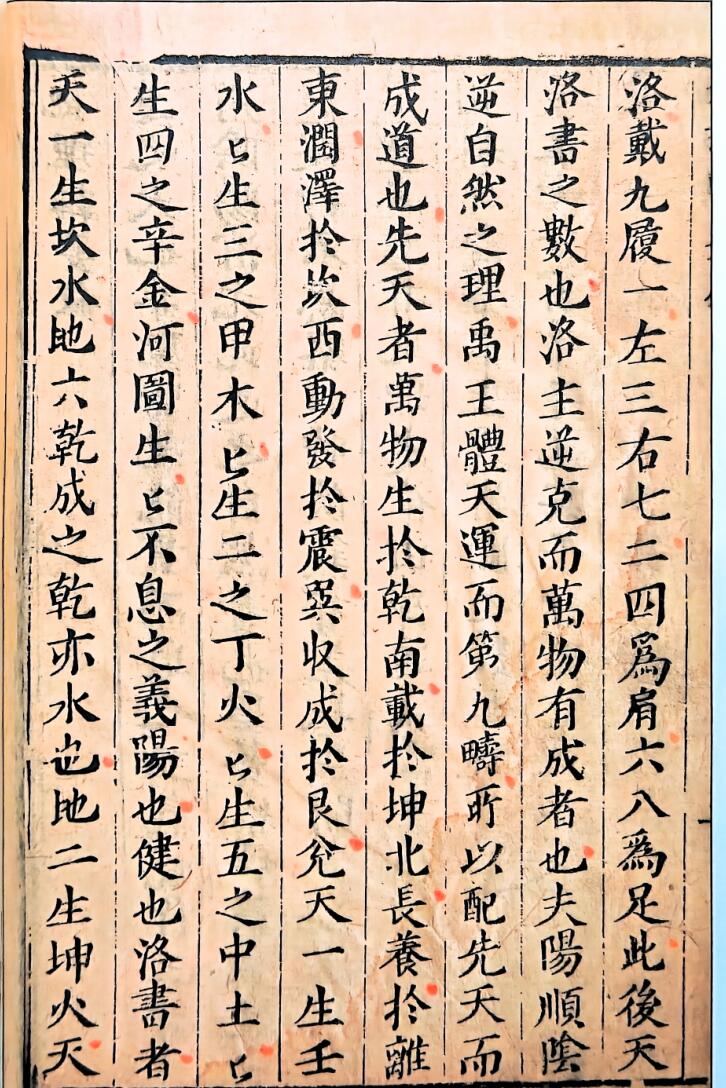 洛戴九履一左三右七二四爲肩六八爲足此後天
洛書之數也洛主逆克而萬物有成者也夫陽順陰
逆自然之理禹王體天運而第九疇所以配先天而
成道也先天者萬物生於乾南載於坤北長養於離
東潤澤於坎西動發於震巽收成於艮兊天一生壬
水匕生三之甲木匕生二之丁火匕生五之中土匕
生四之辛金河圖生匕不息之義陽也健也洛書者
天一生坎水地六乾成之乾亦水也地二生坤火天